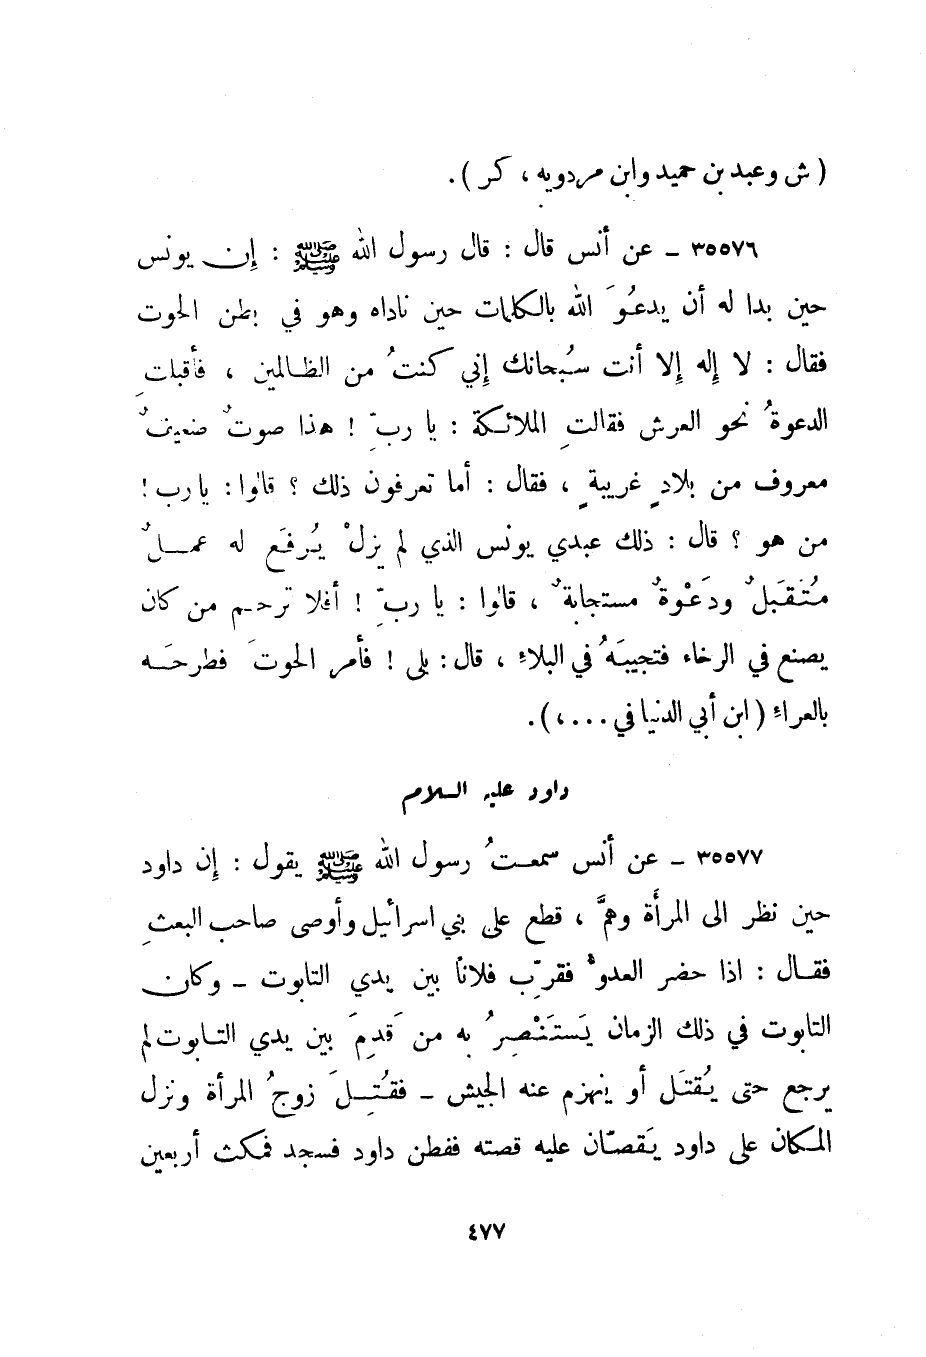 ( ش وعبد بن حميد وابن مردويه ، كر ) .
٣٥٥٧٦ ـ عن أنس قال : قال رسول الله ﷺ : إن يونس
حين بدا له أن يدعُوَ الله بالكلمات حين ناداه وهو في بطن الحوت
فقال : لا إله إلا أنت سُبحانك إني كنتُ من الظالمين ، فأقبلتِ
الدعوةُ نحو العرش فقالتِ الملائكة : يا ربِّ ! هذا صوتٌ ضعيفٌ
معروف من بلادٍ غريبةٍ ، فقال : أما تعرفون ذلك ؟ قالوا : يا رب !
من هو ؟ قال : ذلك عبدي يونس الذي لم يزلْ يُرفَع له عملٌ
مُتَقَبلٌ ودَعْوةٌ مستجابةٌ ، قالوا : يا ربِّ ! أفلا ترحم من كان
يصنع في الرخاء فتجيبَهُ في البلاءِ ، قال : بلى ! فأمر الحوتَ فطرحَه
بالعراءِ ( ابن أبي الدنيا في . . . ، ) .
داود عليه السلام
٣٥٥٧٧ ـ عن أنس سمعتُ رسول الله ﷺ يقول : إن داود
حين نظر الى المرأة وهمَّ ، قطع على بني اسرائيل وأوصى صاحب البعثِ
فقال : اذا حضر العدوُّ فقرِّب فلاناً بين يدي التابوت ـ وكان
التابوت في ذلك الزمان يَستَنْصِرُ به من قَدِمَ بين يدي التابوت لم
يرجع حتى يُقتَل أو ينهزم عنه الجيش ـ فقُتِلَ زوجُ المرأة ونزل
الملكان على داود يَقصّان عليه قصته ففطن داود فسجد فمكث أربعين
٤٧٧